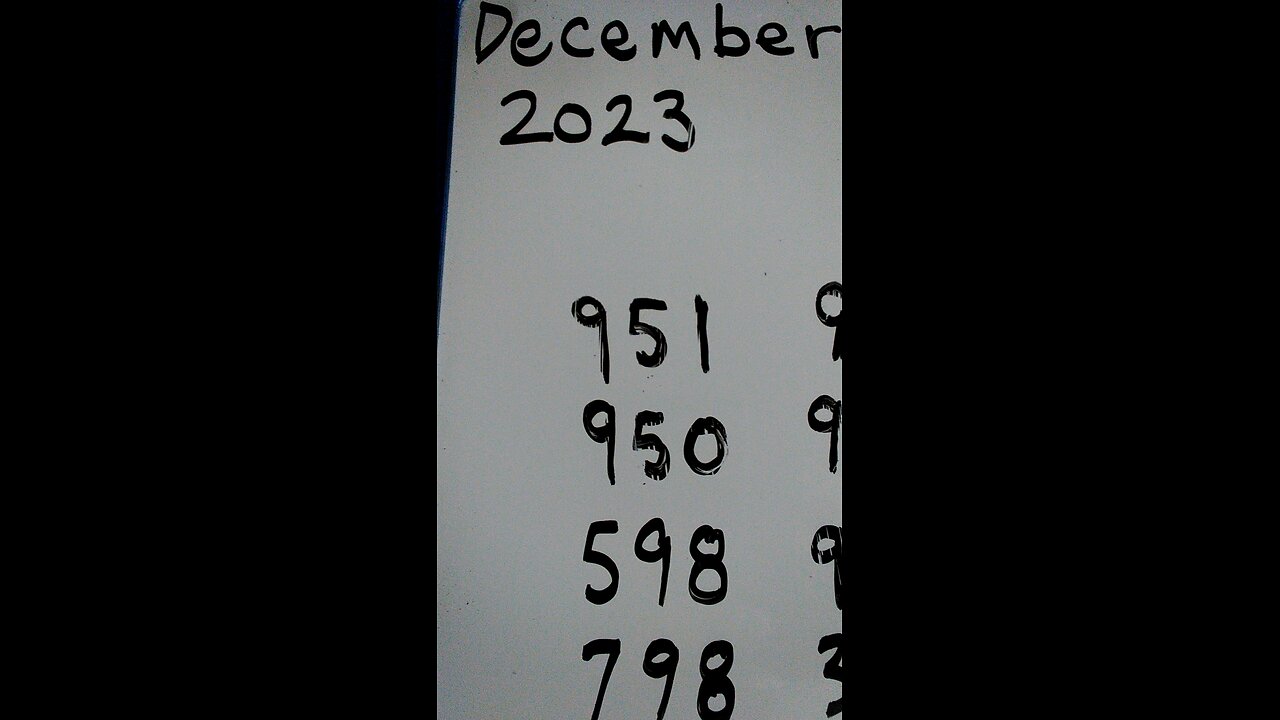 December
2023
951 9
950 9
598 9
798 3